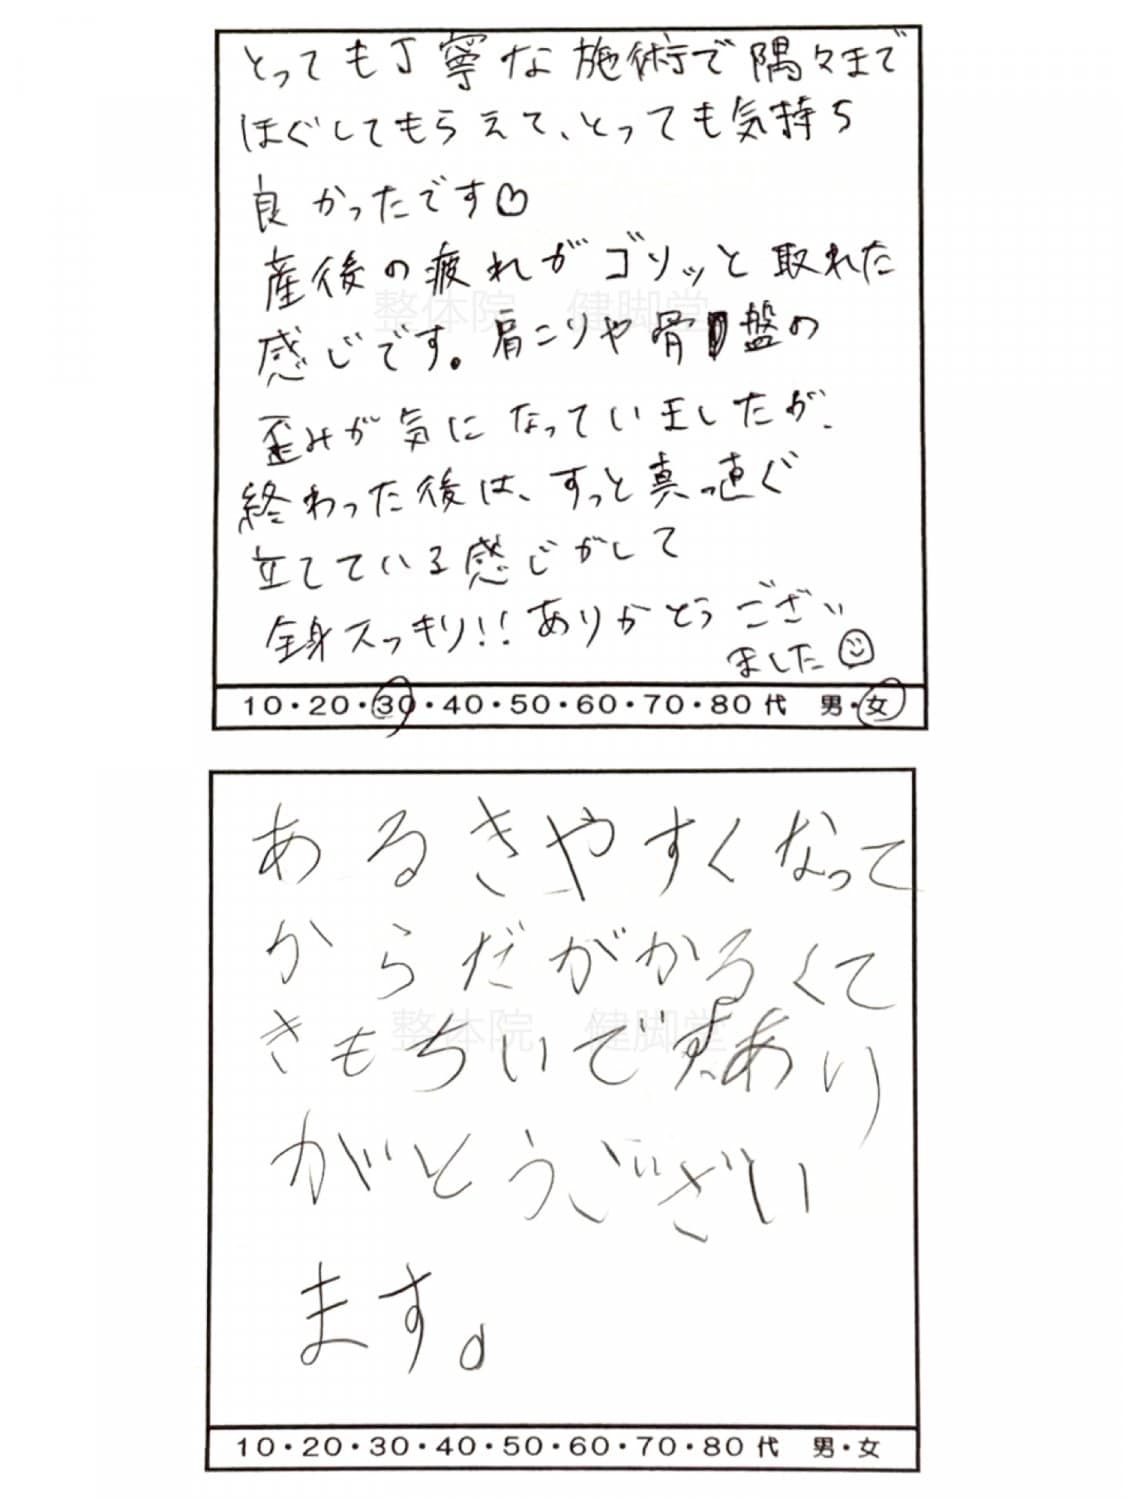 とっても丁寧な施術で隅々まで
ほぐしてもらえて、とっても気持ち
良かったです♡
産後の疲れがゴソッと取れた
整体院 健脚堂
感じです。肩こりや骨盤の
歪みが気になっていましたが、
終わった後は、すっと真っ直ぐ
立てている感じがして
全身スッキリ!!ありがとうござい
ました☺
10・20・30・40・50・60・70・80代 男・女
あるきやすくなって
からだがかるくて
きもちいいです。あり
整体院 健脚堂
がとうござい
ます。
10・20・30・40・50・60・70・80代 男・女